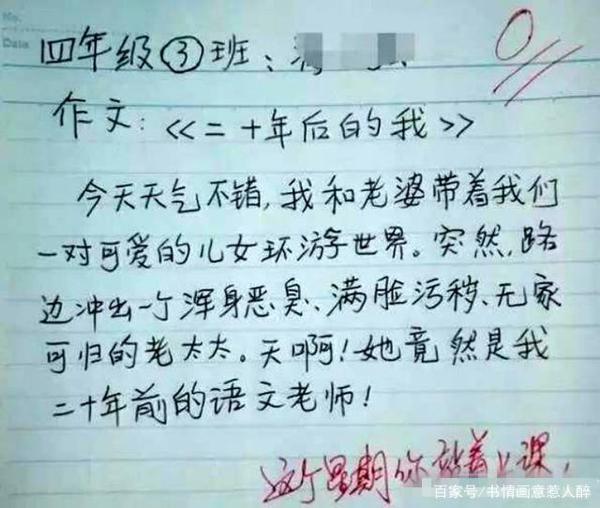 No.
Date
四年级③班:
0
作文:《二十年后的我》
今天天气不错,我和老婆带着我们
一对可爱的儿女环游世界。突然,路
边冲出一个浑身恶臭、满脸污秽、无家
可归的老太太。天啊!她竟然是我
二十年前的语文老师!
这个星期你站着上课,
百家号/书情画意惹人醉